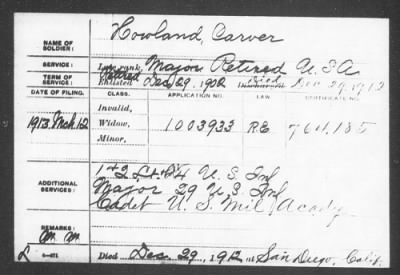 NAME OF SOLDIER: Howland, Carver
SERVICE: Late rank, Major Retired U.S.A
TERM OF SERVICE: Retired Enlisted Dec 29, 1902 Died Discharged Dec 29, 1912
DATE OF FILING. CLASS. APPLICATION NO. LAW. CERTIFICATE NO.
Invalid,
1913 Mch 12 Widow, 1003933 R.E 764,185
Minor,
ADDITIONAL SERVICES: 1 & 2 Lt. 4 U.S. Inf
Major 29 U.S. Inf
Cadet U.S. Mil. Acady.
REMARKS: M. M.
Died Dec. 29, 1912, at San Diego, Calif.